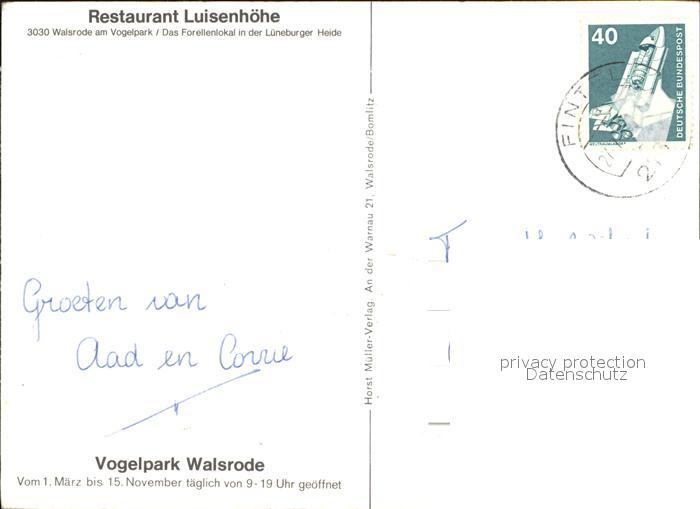 Restaurant Luisenhöhe
3030 Walsrode am Vogelpark / Das Forellenlokal in der Lüneburger Heide
Groeten van
Aad en Corrie
Vogelpark Walsrode
Vom 1. März bis 15. November täglich von 9-19 Uhr geöffnet
Horst Müller-Verlag An der Warnau 21, Walsrode/Bomlitz
40
DEUTSCHE BUNDESPOST
FINT
privacy protection
Datenschutz